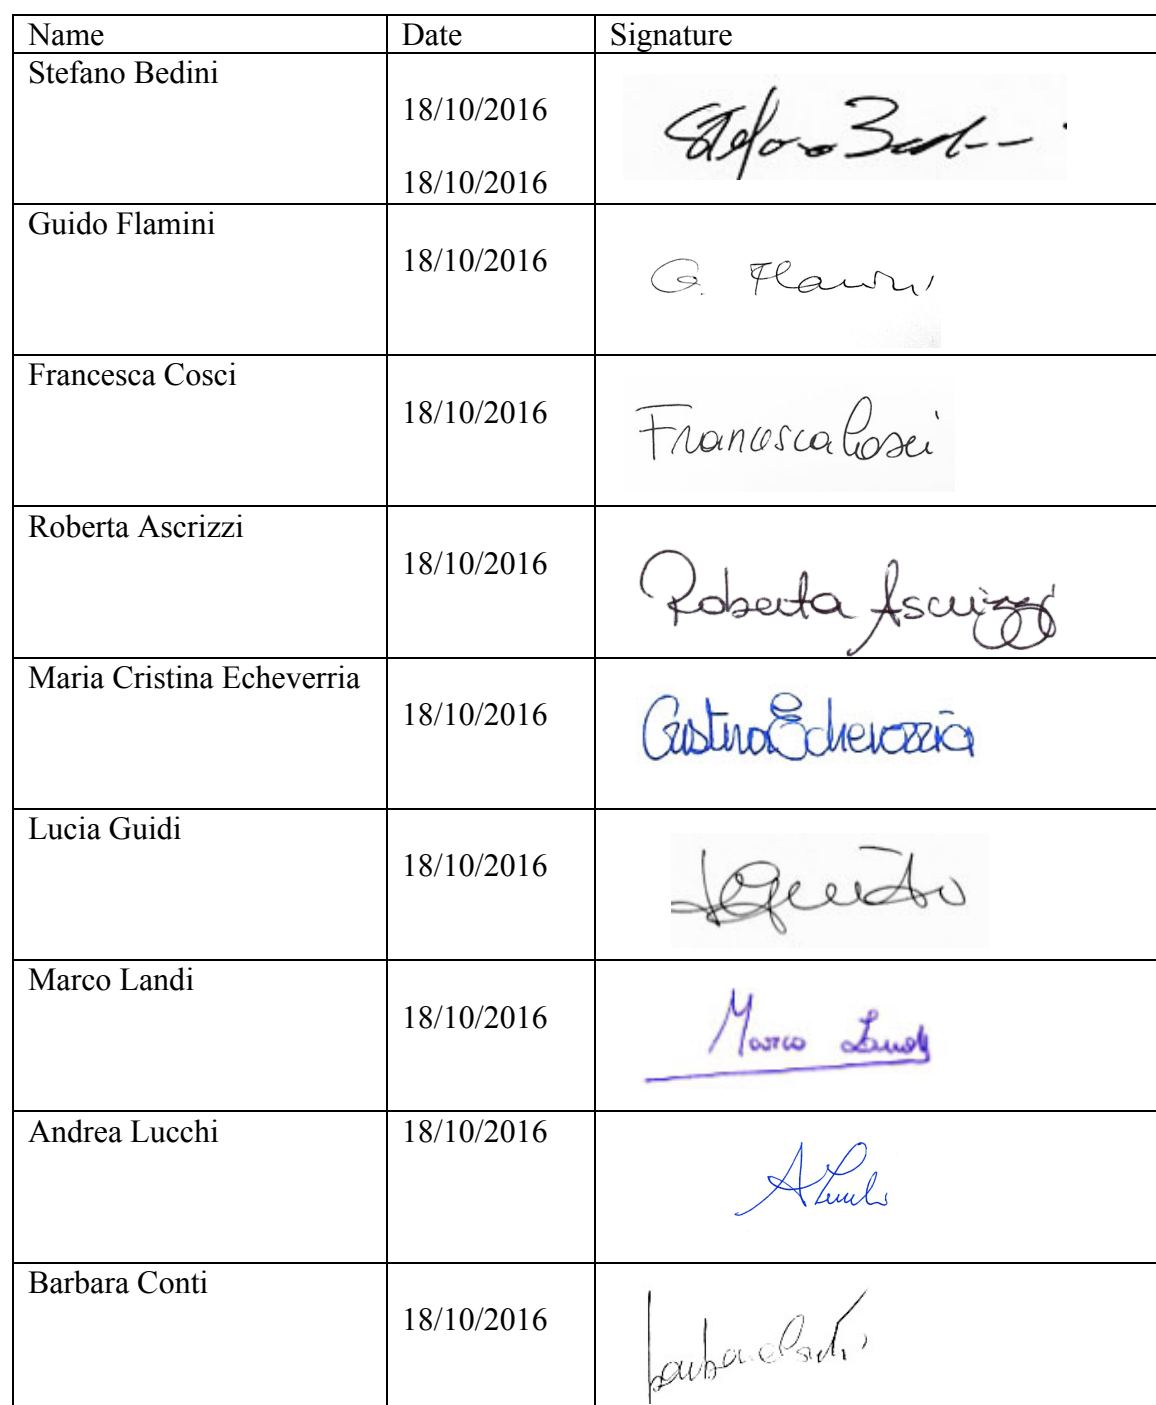 Name Date Signature
Stefano Bedini
18/10/2016
18/10/2016
Stefano Bedini
Guido Flamini
18/10/2016
G. Flamini
Francesca Cosci
18/10/2016
Francesca Cosci
Roberta Ascrizzi
18/10/2016
Roberta Ascrizzi
Maria Cristina Echeverria
18/10/2016
Cristina Echeverria
Lucia Guidi
18/10/2016
Marco Landi
18/10/2016
Marco Landi
Andrea Lucchi
18/10/2016
A Lucchi
Barbara Conti
18/10/2016
Barbara Conti